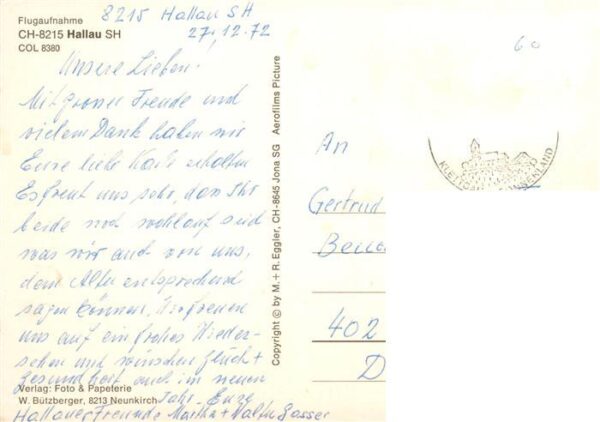 Flugaufnahme
CH-8215 Hallau SH
COL 8380
8215 Hallau SH
27.12.72
Unsere Lieben.
Mit grosser Freude und
vielem Dank haben wir
Eure liebe Karte erhalten
Es freut uns sehr, dass Ihr
beide noch wohlauf seid
was wir auch von uns,
dem Alter entsprechend
sagen können. Wir freuen
uns auf ein frohes Wieder-
sehen und wünschen Glück +
Gesundheit auch im neuen
Jahr. Eure
Hallauer Freunde Martha + Walter Gasser
Verlag: Foto & Papeterie
W. Bützberger, 8213 Neunkirch
Copyright © by M. + R. Eggler, CH-8645 Jona SG Aerofilms Picture
60
An
Gertrud
402
D